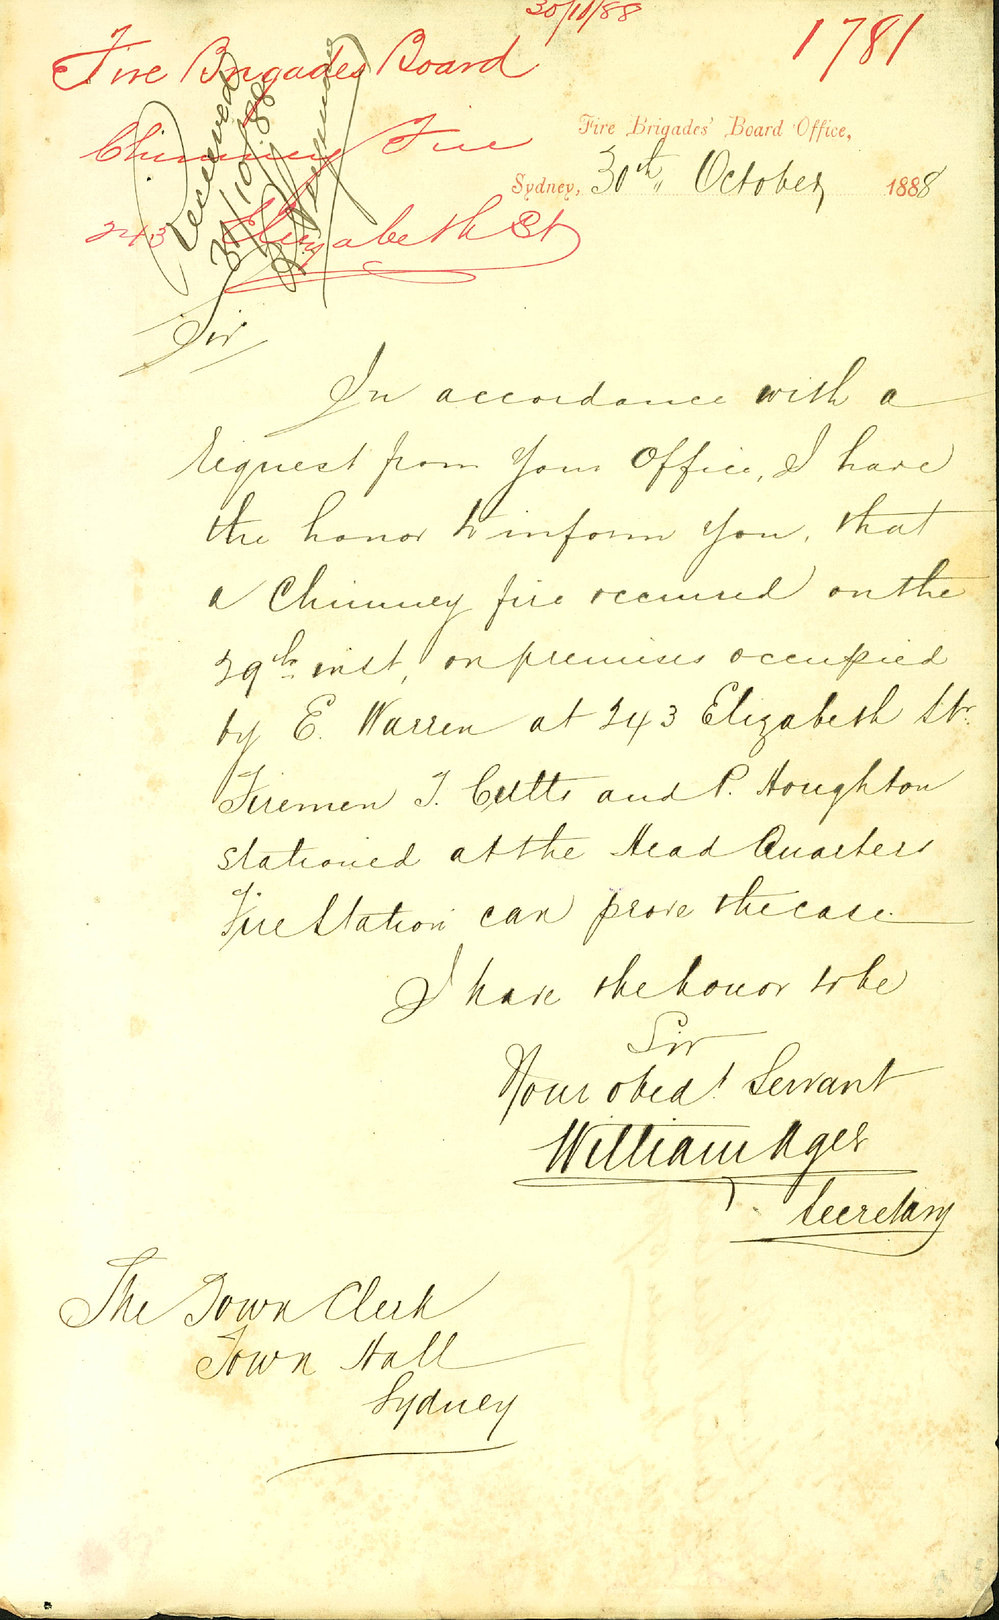 30/10/88
1781
Fire Brigades Board
Chimney Fire
243 Elizabeth St
Received
30/10/88
Fire Brigades' Board Office,
Sydney, 30th October 1888
Sir
In accordance with a
request from your Office, I have
the honor to inform you, that
a Chimney fire occurred on the
29th inst, on premises occupied
by E. Warren at 243 Elizabeth Str.
Firemen T. Cutts and P. Houghton
stationed at the Head Quarters
Fire Station can prove the case
I have the honor to be
Sir
Your obedt Servant
William Ager
Secretary
The Town Clerk
Town Hall
Sydney